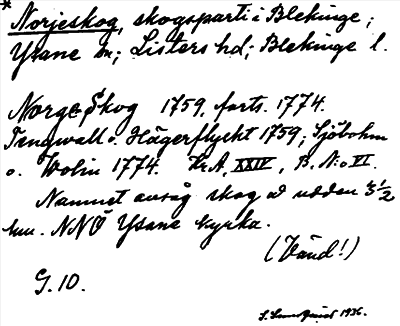 * Norjeskog, skogsparti i Blekinge;
Ysane sn; Listers hd; Blekinge l.
Norge Skog 1759, forts. 1774.
Tengwall o. Hägerflycht 1759; Sjöbohm
o. Wolin 1774. Kr.A. XXIV, B. N:o VI.
Namnet avsåg skog å udden 3 1/2
km. NNÖ Ysane kyrka.
(Vänd!)
G. 10.
1936.